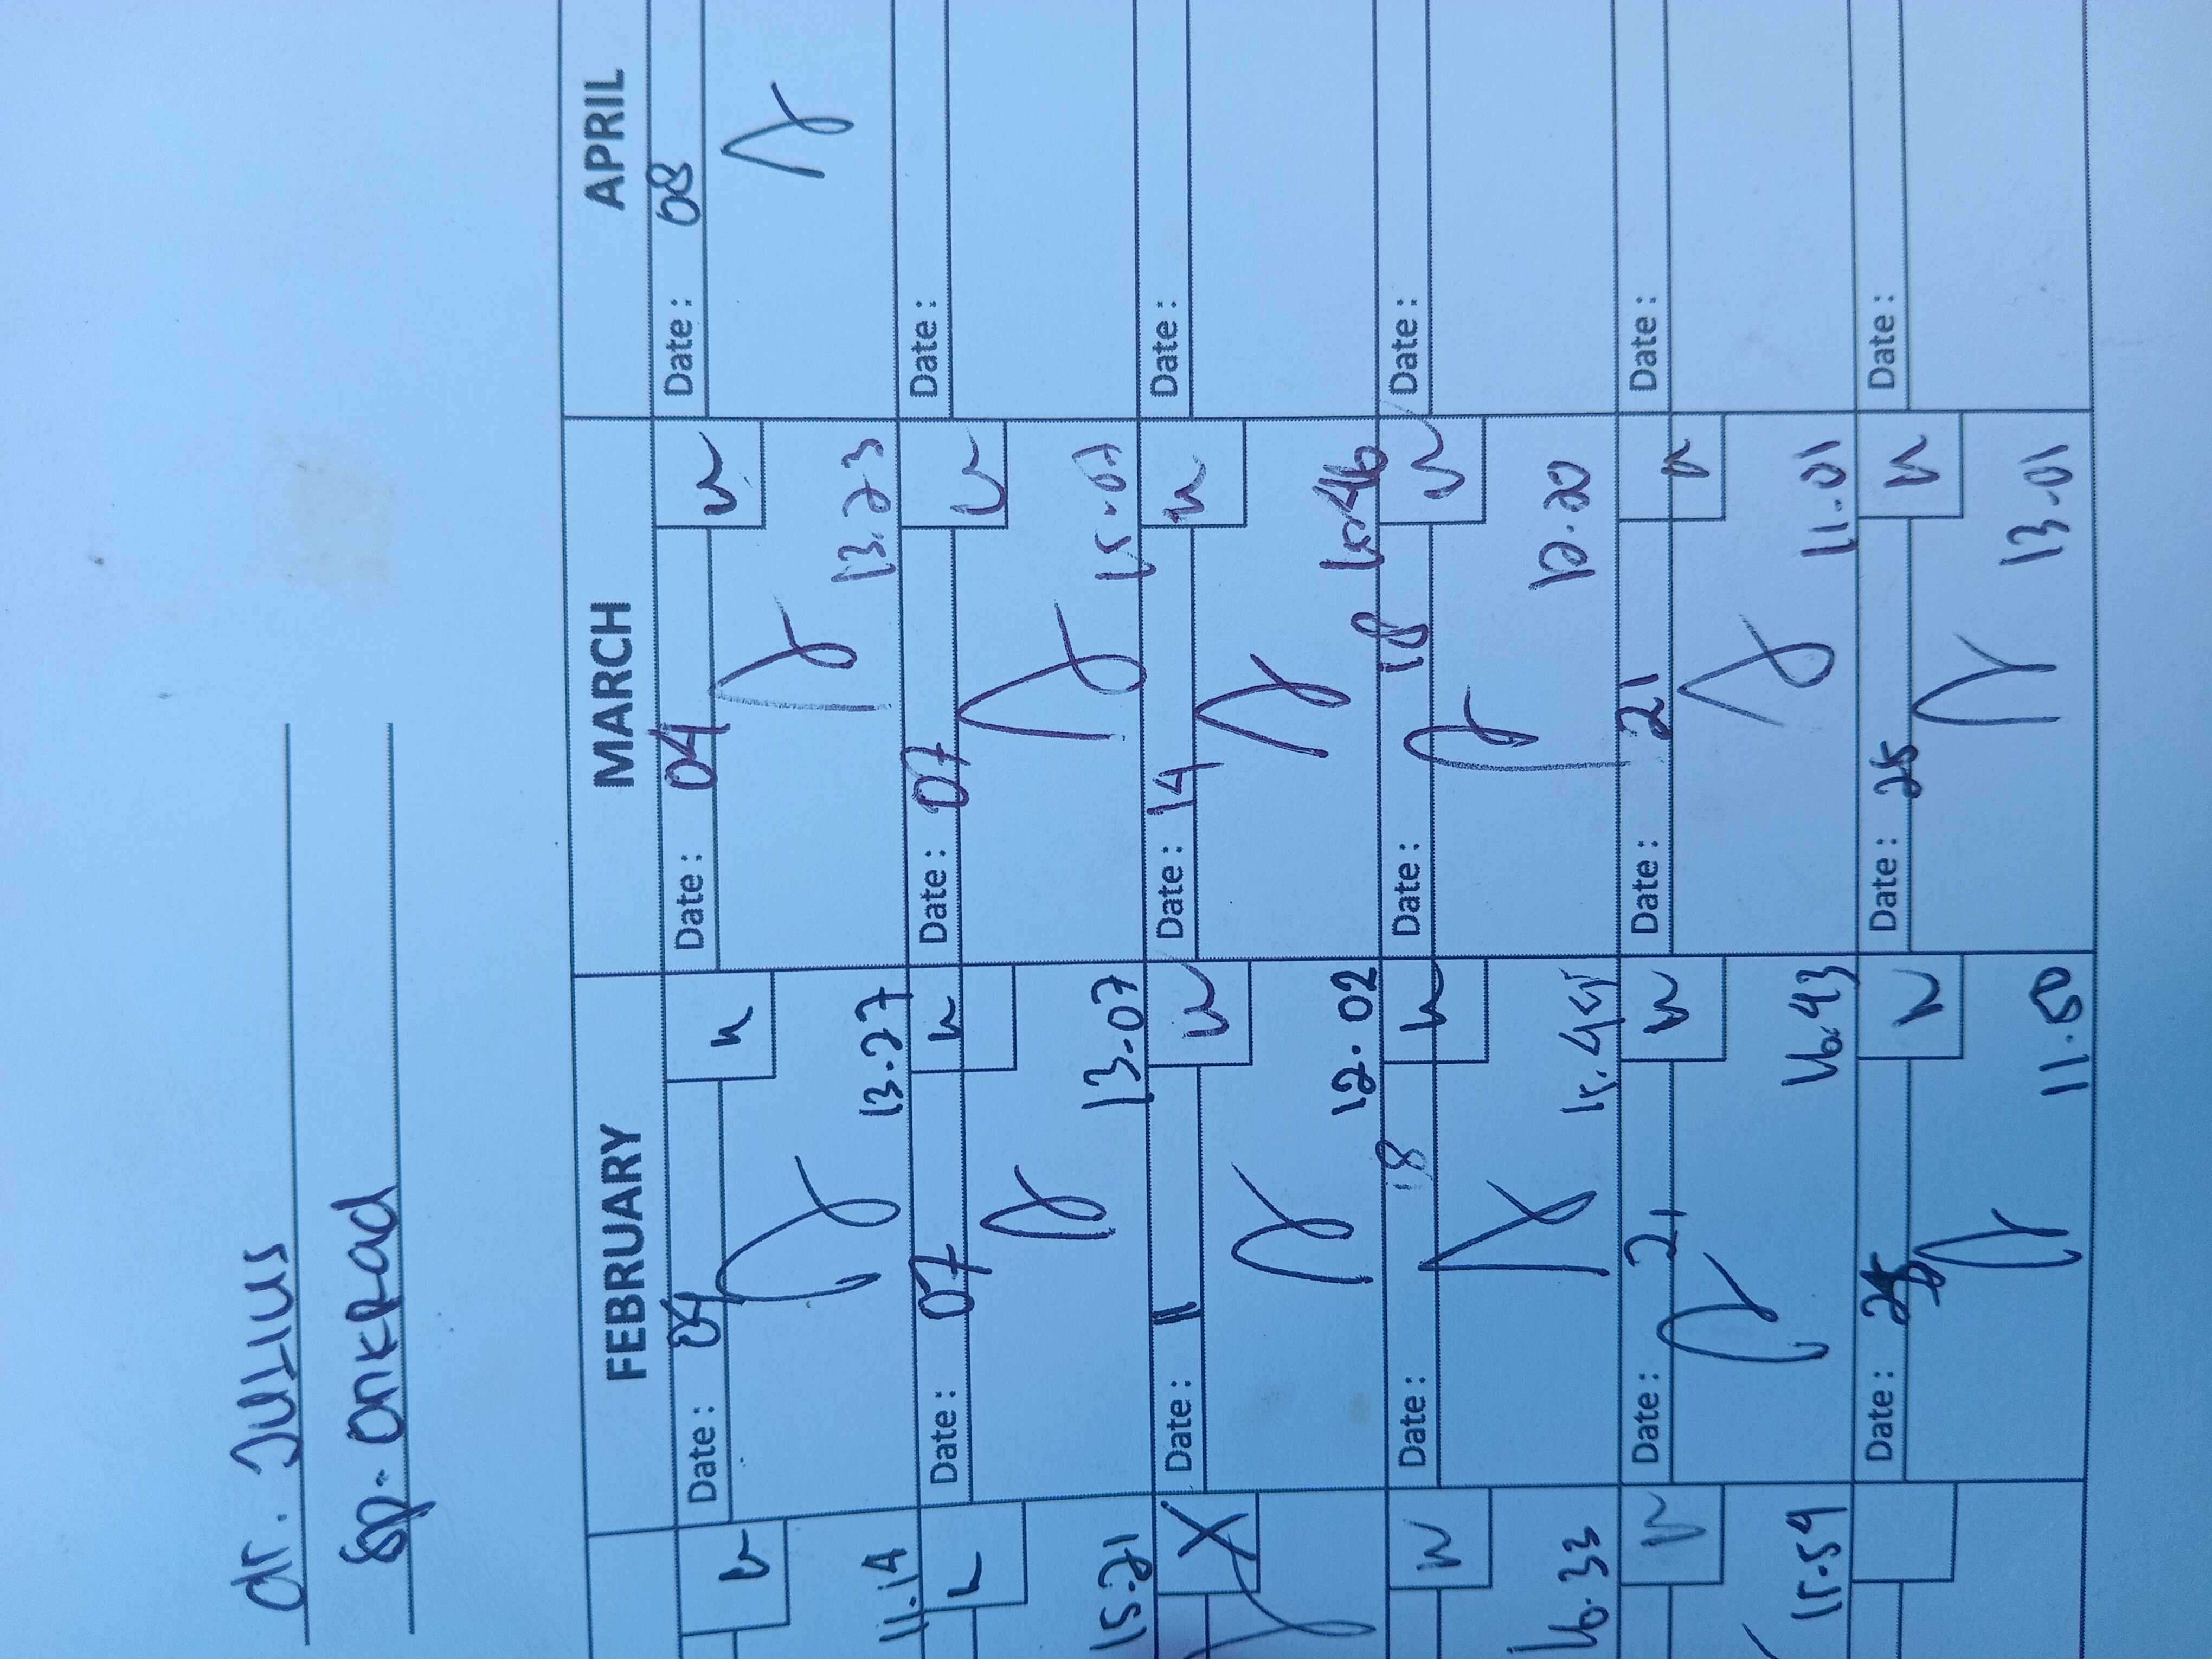 dr. Julius
Sp. OnkRad
FEBRUARY MARCH APRIL
Date: 04 Date: 04 Date: 08
11.14 13.27 13.23
Date: 07 Date: 07 Date:
15.21 13.07 15.07
X Date: 11 Date: 14 Date:
12.02
Date: 18 Date: 18 Date:
16.33 12.20
Date: 21 Date: 21 Date:
15.59 16.43 11.01
Date: 25 Date: 25 Date:
11.50 13.01